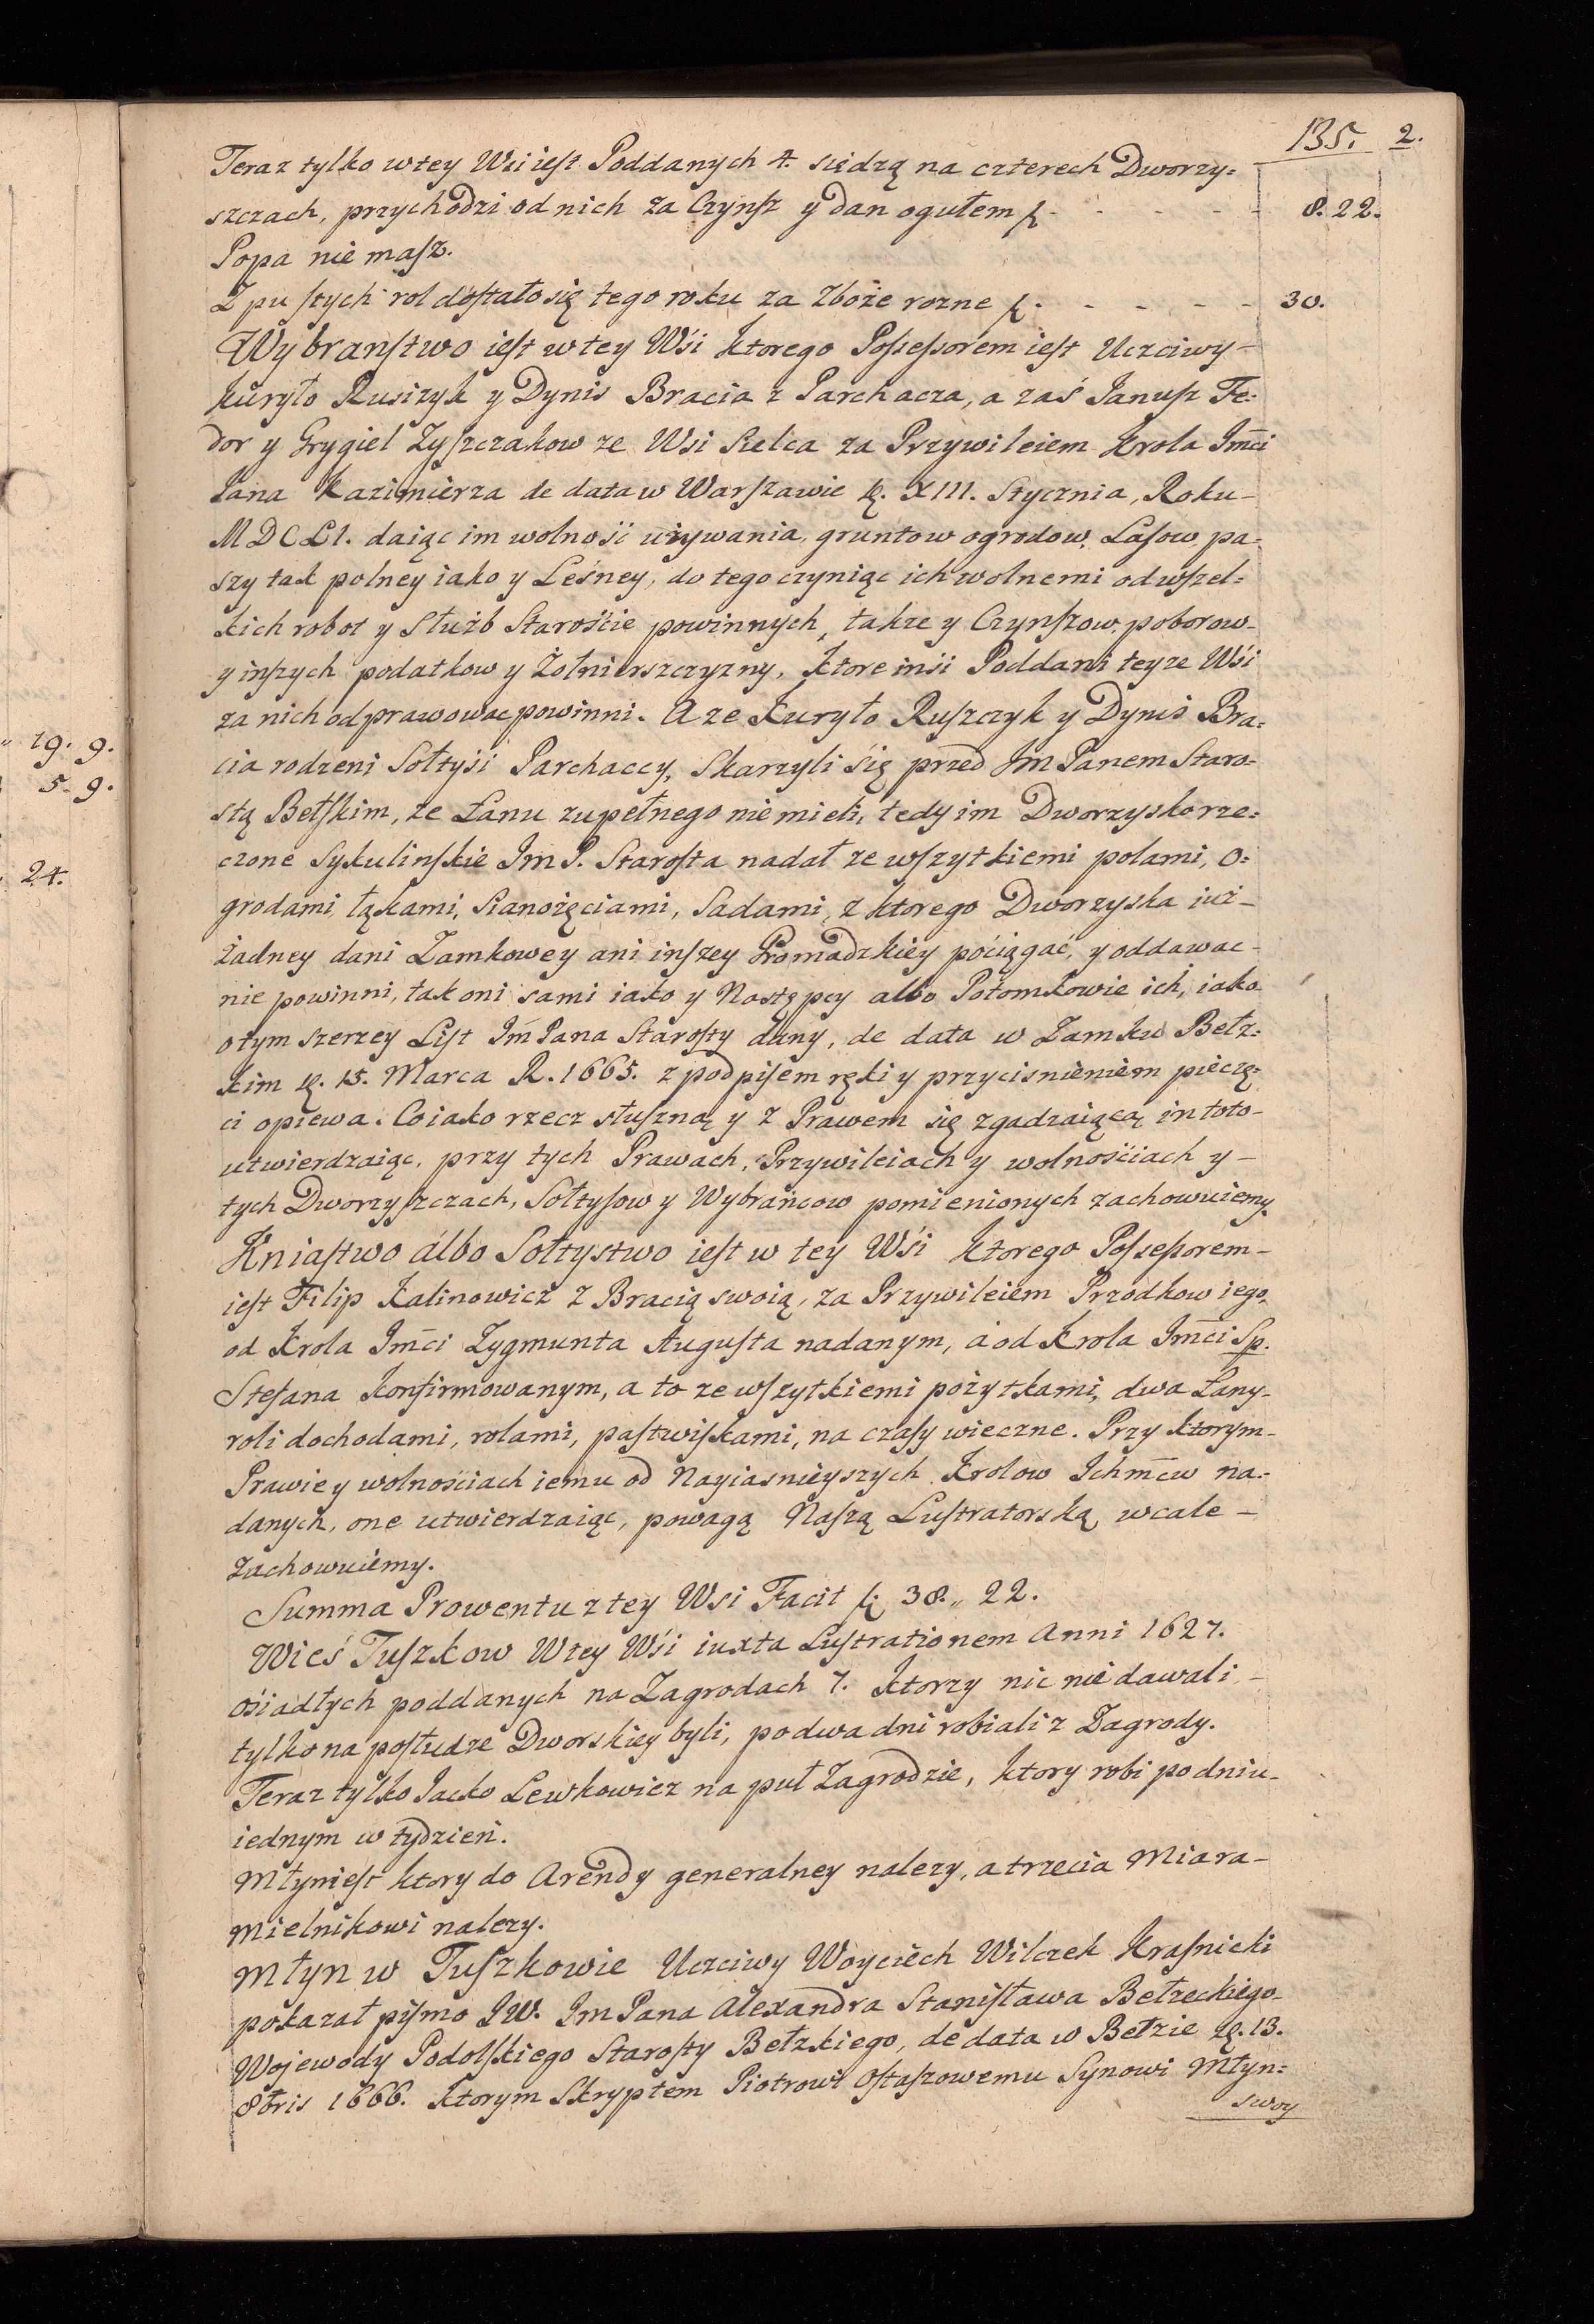 135. 2.
Teraz tylko w tey Wsi iest Poddanych 4. siedzą na czterech Dworzy=
szczach, przychodzi od nich za Czynsz y dan ogułem f. - - - - - 8. 22.
Popa nie masz.
Z pustych rol dostało się tego roku za Zboże rozne f. - - - - - 30.
Wybranstwo iest w tey Wśi ktorego Possessorem iest Uczciwy -
Kuryło Rusizyk y Dynis Bracia z Parchacza, a zaś Janusz Fe=
dor y Grygiel Zyszczakow ze Wsi Sielca za Przywileiem Krola Jmci
Jana Kazimierza de data w Warszawie d. XIII. Stycznia, Roku -
MDCLI. daiąc im wolność używania, gruntow ogrodow, Lasow pa=
szy tak polney iako y Leśney, do tego czyniąc ich wolnemi od wszel=
kich robot y służb Starośćie powinnych, takze y Czynszow, poborow -
y inszych podatkow y Żołnierszczyzny, ktore inśi Poddani teyze Wśi
za nich odprawowac powinni. A ze Kuryło Ruszczyk y Dynis Bra=
cia rodzeni Sołtysi Parchaccy, Skarzyli śię przed Jm Panem Staro=
stą Bełskim, ze Łanu zupełnego nie mieli, tedy im Dworzysko rze=
czone Sykulinskie Jm P. Starosta nadał ze wszytkiemi polami, o=
grodami, łąkami, Sianożęciami, Sadami, z ktorego Dworzyska iuż -
żadney dani Zamkowey ani inszey Gromadzkiey poćiągać, y oddawac -
nie powinni, tak oni sami iako y Następcy albo Potomkowie ich, iako
o tym szerzey List Jm Pana Starosty dany, de data w Zamku Bełz=
kim d. 15. Marca R. 1665. z podpisem ręki y przycisnieniem pieczę=
ci opiewa. Co iako rzecz słuszną y z Prawem się zgadzaiącą in toto -
utwierdzaiąc, przy tych Prawach, Przywileiach y wolnośćiach y -
tych Dworzyszczach, Sołtysow y Wybrańcow pomienionych zachowuiemy.
Kniastwo albo Sołtystwo iest w tey Wśi ktorego Possessorem -
iest Filip Kalinowicz z Bracią swoią, za Przywileiem Przodkow iego,
od Krola Jmci Zygmunta Augusta nadanym, a od Krola Jmci Sp.
Stefana konfirmowanym, a to ze wszytkiemi pożytkami, dwa Łany -
roli dochodami, rolami, pastwiskami, na czasy wieczne. Przy ktorym -
Prawie y wolnośćiach iemu od Nayiasnieyszych Krolow Ichmciw na=
danych, one utwierdzaiąc, powagą Naszą Lustratorską wcale -
zachowuiemy.
Summa Prowentu z tey Wsi Facit f. 38. „ 22.
Wieś Tuszkow W tey Wśi iuxta Lustrationem Anni 1627.
ośiadłych poddanych na Zagrodach 7. ktorzy nic nie dawali, -
tylko na posłudze Dworskiey byli, po dwa dni robiali z Zagrody.
Teraz tylko Jacko Lewkowicz na puł Zagrodzie, ktory robi po dniu -
iednym w tydzień.
Młyn iest ktory do Arendy generalney nalezy, a trzecia Miara -
Mielnikowi nalezy.
Młyn w Tuszkowie Uczciwy Woyciech Wilczek Krasnicki
pokazał pismo JW. Jm Pana Alexandra Stanisława Bełzeckiego
Wojewody Podolskiego Starosty Bełzkiego, de data w Bełzie d. 13.
8bris 1666. ktorym Skryptem Piotrowi Ostaszowemu Synowi Młyn=
swoy
19. 9.
5. 9.
24.